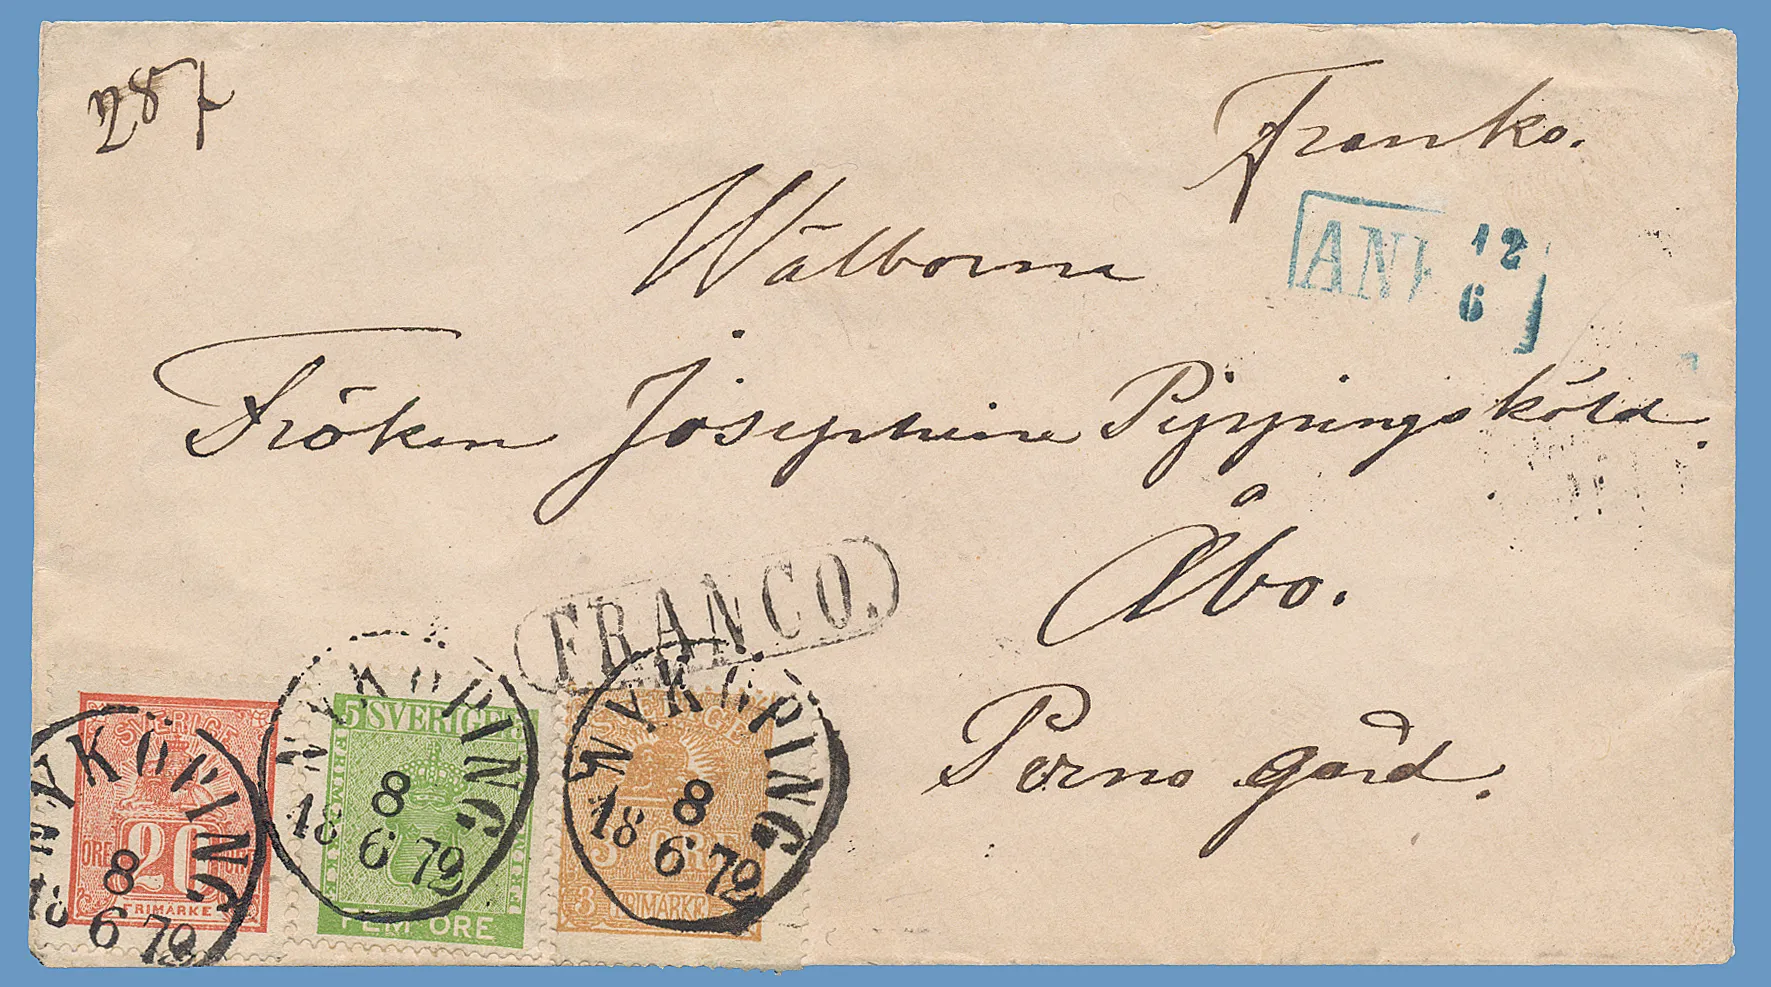 287
Franko.
ANK 12
6
Wälborna
Fröken Josephine Pippingsköld.
Åbo.
Perno gård.
FRANCO.
NYKÖPING
8
18 6 72
SVERIGE
20
ÖRE ÖRE
FRIMÄRKE
NYKÖPING
8
18 6 72
5 SVERIGE
FRIMÄRKE
FEM ÖRE
NYKÖPING
8
18 6 72
SVERIGE
3 ÖRE
3 FRIMÄRKE